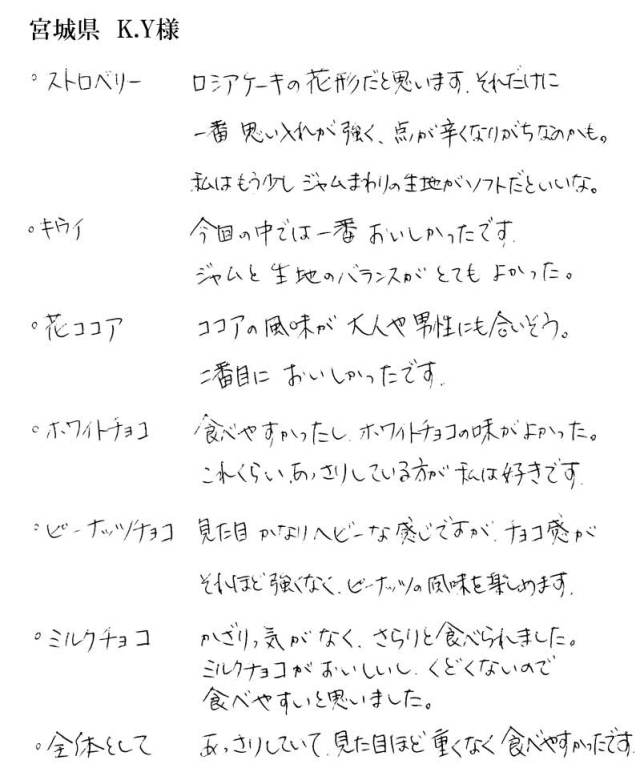 宮城県 K.Y様
◦ストロベリー ロシアケーキの花形だと思います。それだけに
一番思い入れが強く、点が辛くなりがちなのかも。
私はもう少しジャムまわりの生地がソフトだといいな。
◦キウイ 今回の中では一番おいしかったです。
ジャムと生地のバランスがとてもよかった。
◦花ココア ココアの風味が大人や男性にも合いそう。
二番目においしかったです。
◦ホワイトチョコ 食べやすかったし、ホワイトチョコの味がよかった。
これくらいあっさりしている方が私は好きです。
◦ピーナッツチョコ 見た目かなりヘビーな感じですが、チョコ感が
それほど強くなく、ピーナッツの風味を楽しめます。
◦ミルクチョコ かざりっ気がなく、さらりと食べられました。
ミルクチョコがおいしいし、くどくないので
食べやすいと思いました。
◦全体として あっさりしていて、見た目ほど重くなく食べやすかったです。